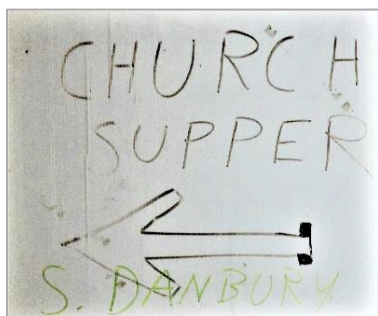 CHURCH
SUPPER
S. DANBURY